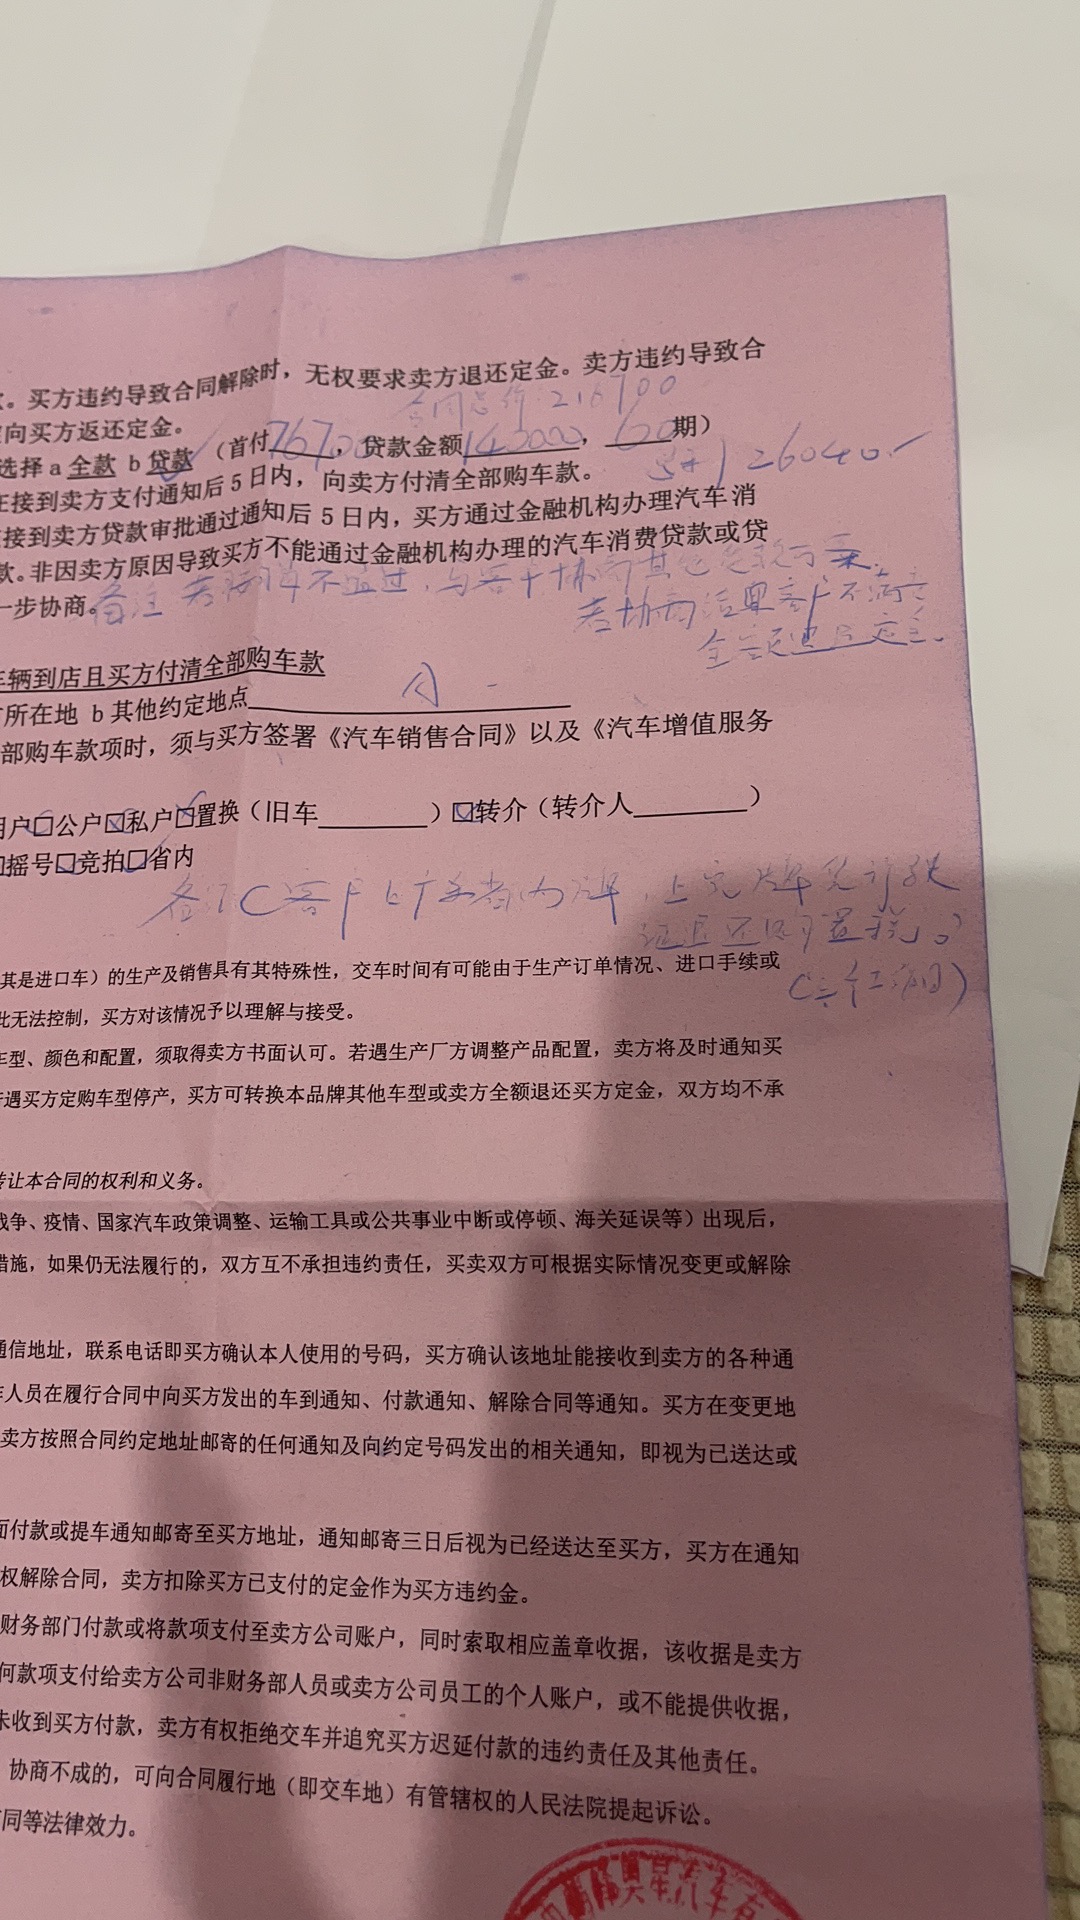 。买方违约导致合同解除时，无权要求卖方退还定金。卖方违约导致合
向买方返还定金。
合同总价：216700
选择 a 全款 b 贷款 （首付76700，贷款金额140000，60期）
26040.
在接到卖方支付通知后 5 日内，向卖方付清全部购车款。
接到卖方贷款审批通过通知后 5 日内，买方通过金融机构办理汽车消
款。非因卖方原因导致买方不能通过金融机构办理的汽车消费贷款或贷
一步协商。
备注 若 不通过，与客户协商其他贷款方案.
若协商结果客户不满意
全额退还定金。
车辆到店且买方付清全部购车款
所在地 b 其他约定地点 A
部购车款项时，须与买方签署《汽车销售合同》以及《汽车增值服务
用户□公户□私户□置换（旧车）□转介（转介人）
□摇号□竞拍□省内
备注C客户上广东省内牌，上完牌凭行驶
证退还购置税。
(三个工作日)
其是进口车）的生产及销售具有其特殊性，交车时间有可能由于生产订单情况、进口手续或
此无法控制，买方对该情况予以理解与接受。
车型、颜色和配置，须取得卖方书面认可。若遇生产厂方调整产品配置，卖方将及时通知买
遇买方定购车型停产，买方可转换本品牌其他车型或卖方全额退还买方定金，双方均不承
转让本合同的权利和义务。
战争、疫情、国家汽车政策调整、运输工具或公共事业中断或停顿、海关延误等）出现后，
措施，如果仍无法履行的，双方互不承担违约责任，买卖双方可根据实际情况变更或解除
通信地址，联系电话即买方确认本人使用的号码，买方确认该地址能接收到卖方的各种通
作人员在履行合同中向买方发出的车到通知、付款通知、解除合同等通知。买方在变更地
卖方按照合同约定地址邮寄的任何通知及向约定号码发出的相关通知，即视为已送达或
面付款或提车通知邮寄至买方地址，通知邮寄三日后视为已经送达至买方，买方在通知
权解除合同，卖方扣除买方已支付的定金作为买方违约金。
财务部门付款或将款项支付至卖方公司账户，同时索取相应盖章收据，该收据是卖方
何款项支付给卖方公司非财务部人员或卖方公司员工的个人账户，或不能提供收据，
未收到买方付款，卖方有权拒绝交车并追究买方迟延付款的违约责任及其他责任。
协商不成的，可向合同履行地（即交车地）有管辖权的人民法院提起诉讼。
同等法律效力。
昊星汽车有